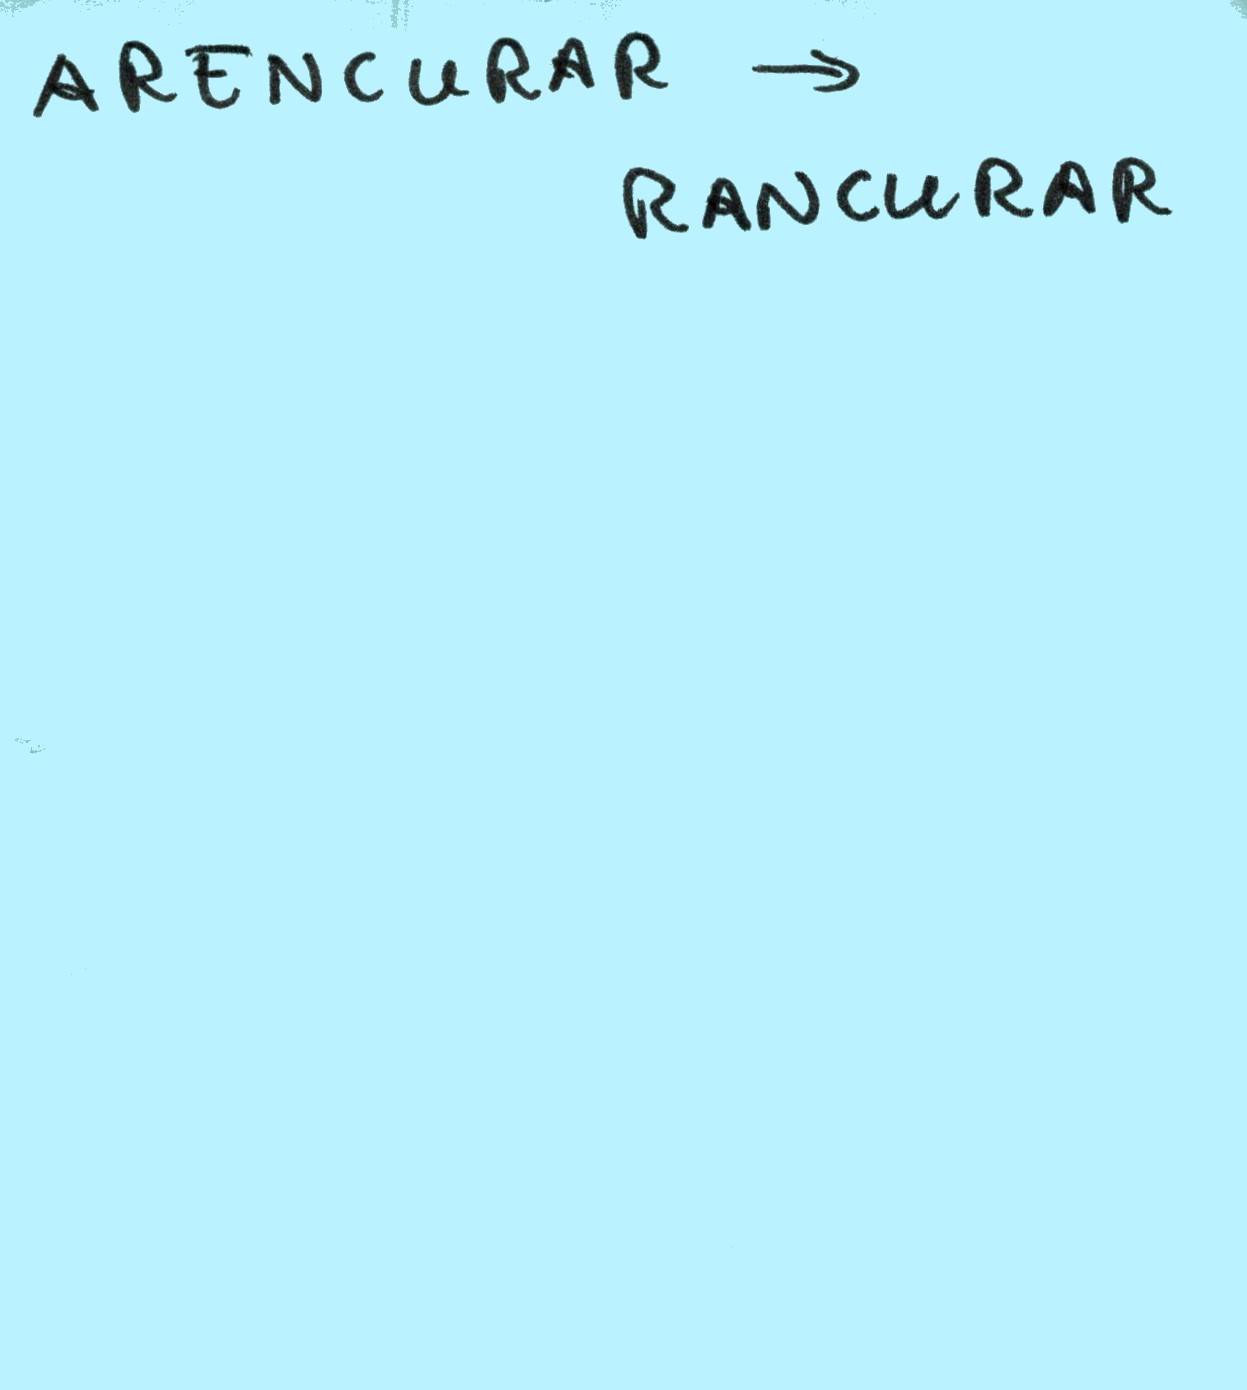 ARENCURAR →
RANCURAR